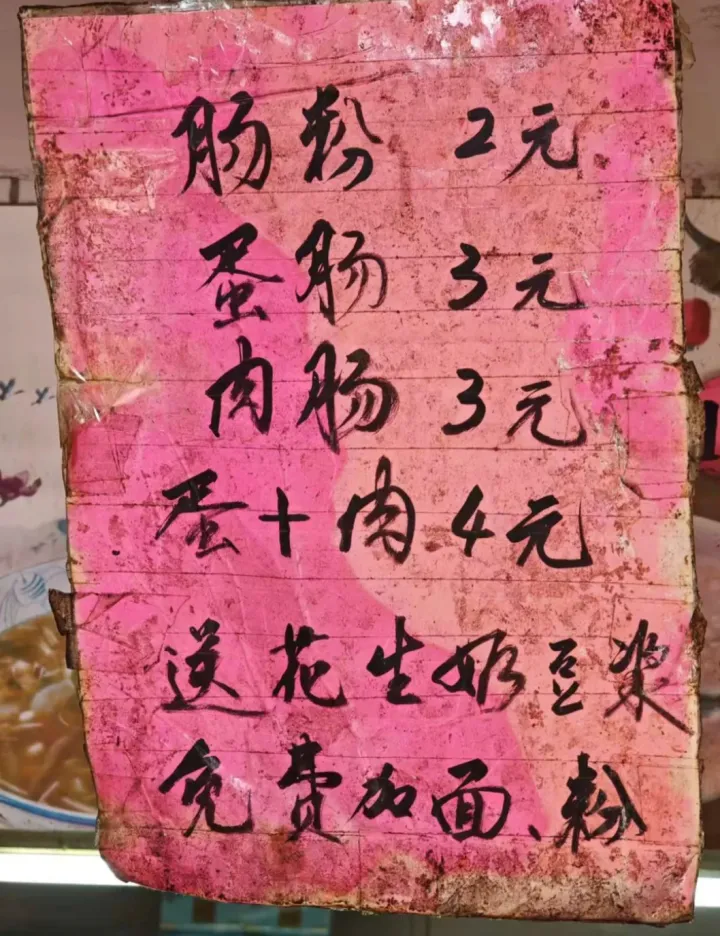 肠粉 2元
蛋肠 3元
肉肠 3元
蛋+肉 4元
送花生奶豆浆
免费加面、粉